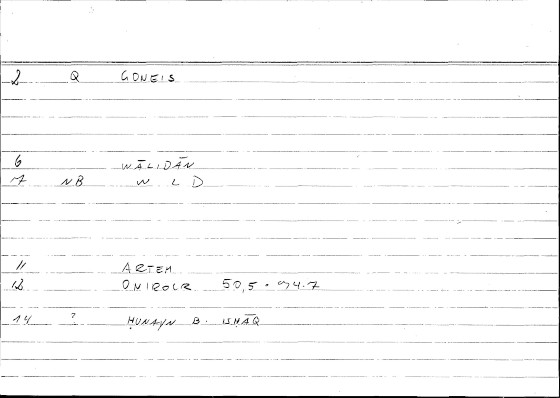 2 Q GONEIS
6 WĀLIDĀN
7 NB W L D
11 ARTEM
12 ONIROCR 50,5 = 94.7
14 ? ḤUNAYN B. ISḤĀQ